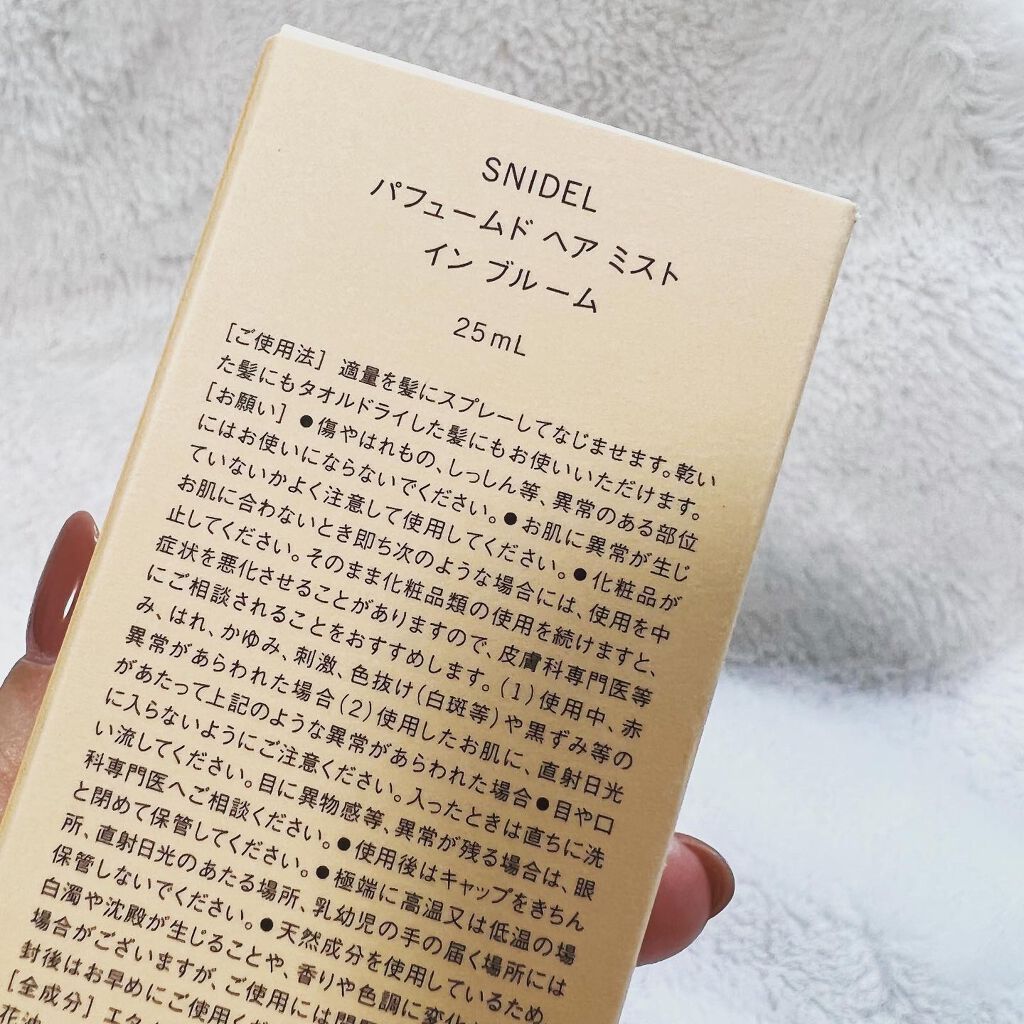 SNIDEL
パフュームド ヘア ミスト
イン ブルーム
25mL
[ご使用法] 適量を髪にスプレーしてなじませます。乾い
た髪にもタオルドライした髪にもお使いいただけます。
[お願い] ●傷やはれもの、しっしん等、異常のある部位
にはお使いにならないでください。●お肌に異常が生じ
ていないかよく注意して使用してください。●化粧品が
お肌に合わないとき即ち次のような場合には、使用を中
止してください。そのまま化粧品類の使用を続けますと、
症状を悪化させることがありますので、皮膚科専門医等
にご相談されることをおすすめします。(1)使用中、赤
み、はれ、かゆみ、刺激、色抜け(白斑等)や黒ずみ等の
異常があらわれた場合(2)使用したお肌に、直射日光
があたって上記のような異常があらわれた場合●目や口
に入らないようにご注意ください。入ったときは直ちに洗
い流してください。目に異物感等、異常が残る場合は、眼
科専門医へご相談ください。●使用後はキャップをきちん
と閉めて保管してください。●極端に高温又は低温の場
所、直射日光のあたる場所、乳幼児の手の届く場所には
保管しないでください。●天然成分を使用しているため、
白濁や沈殿が生じることや、香りや色調に変化
場合がございますが、ご使用には問題
封後はお早めにご使用く
[全成分] エタ
花油